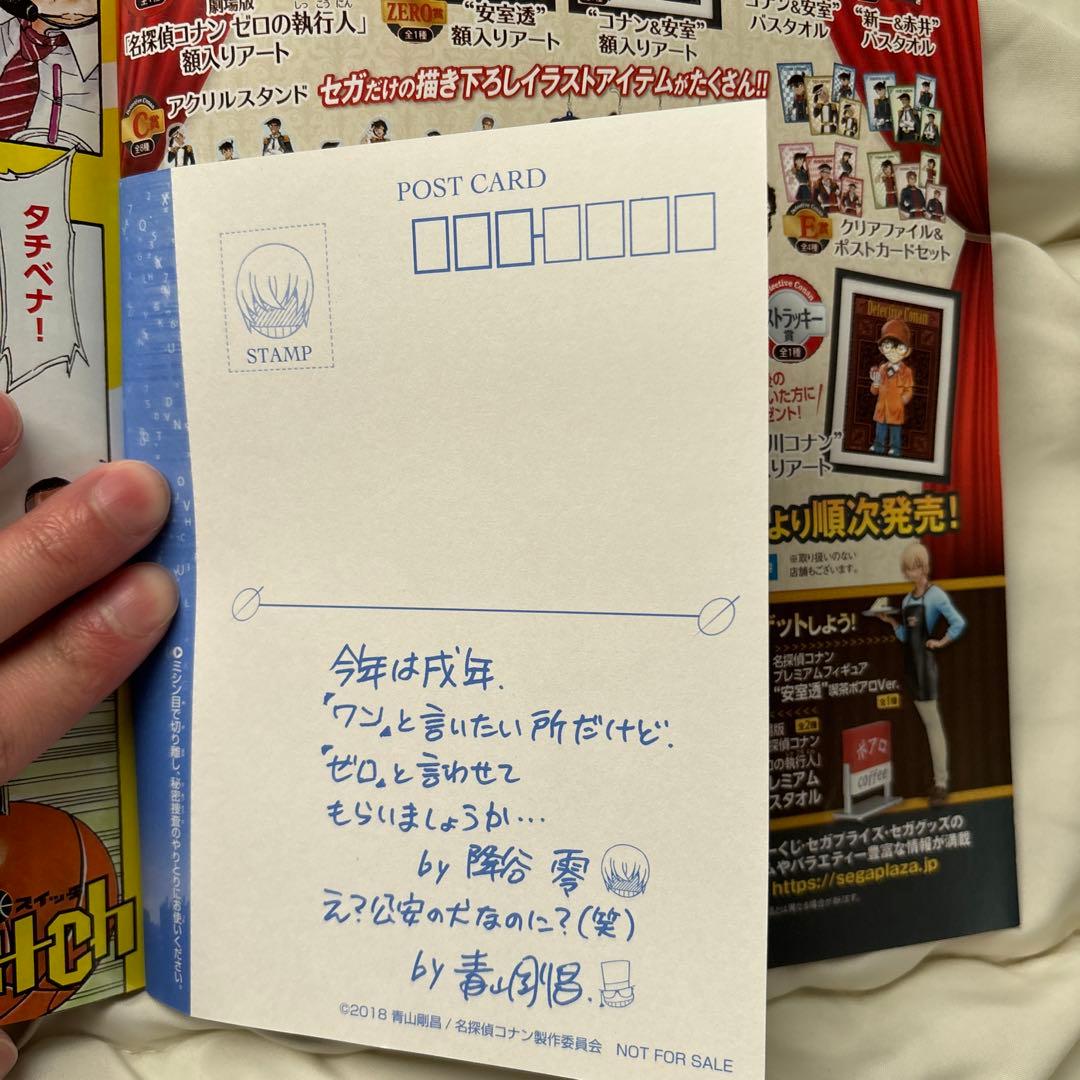 劇場版
しっこうにん
「名探偵コナン ゼロの執行人」
額入りアート
ZERO賞
全1種
“安室透”
額入りアート
“コナン&安室”
額入りアート
コナン&安室”
バスタオル
“新一&赤井”
バスタオル
セガだけの描き下ろしイラストアイテムがたくさん!!
C賞
全8種
アクリルスタンド
E賞
全4種
クリアファイル&
ポストカードセット
ストラッキー
賞
全1種
Detective Conan
いた方に
ゼント!
川コナン”
入りアート
より順次発売!
※取り扱いのない
店舗もございます。
ゲットしよう!
名探偵コナン
プレミアムフィギュア
“安室透”喫茶ポアロVer.
全1種
全2種
探偵コナン
の執行人」
レミアム
スタオル
ポアロ
coffee
ーくじ・セガプライズ・セガグッズの
ムやバラエティー豊富な情報が満載
https://segaplaza.jp
タチベナ!
スイッチ
itch
POST CARD
STAMP
ミシン目で切り離し、秘密捜査のやりとりにお使いください。
今年は戌年.
『ワン』と言いたい所だけど.
『ゼロ』と言わせて
もらいましょうか…
by 降谷 零
え?公安の犬なのに?(笑)
by 青山剛昌.
©2018 青山剛昌 / 名探偵コナン製作委員会 NOT FOR SALE